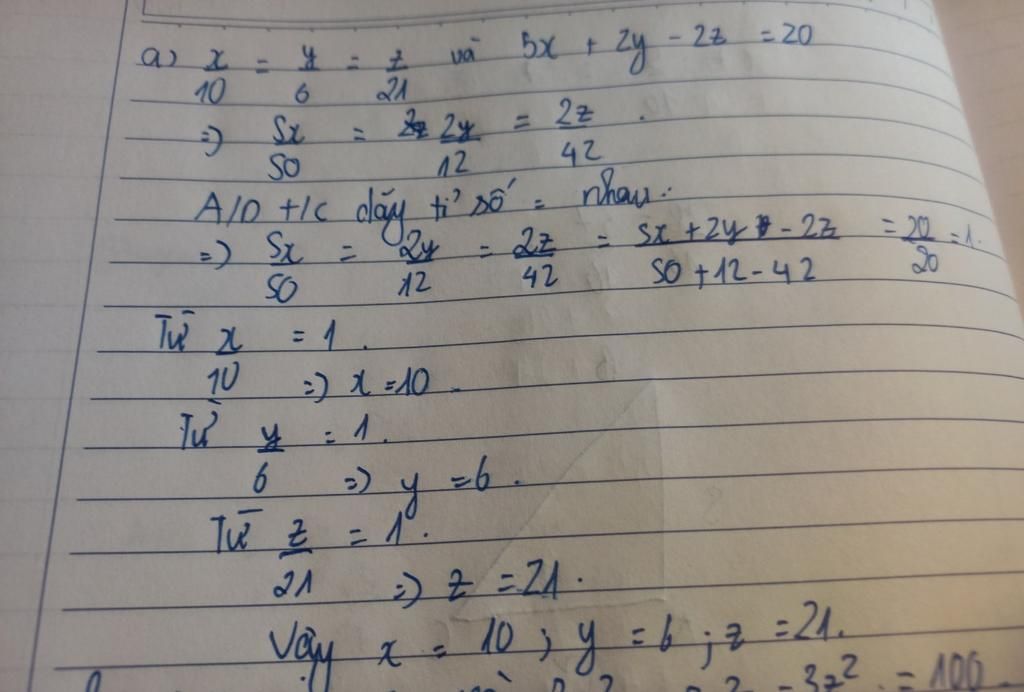 a) x/10 = y/6 = z/21 và 5x + 2y - 2z = 20
=) 5x/50 = 2y/12 = 2z/42 .
A/D t/c dãy tỉ số = nhau:
=) 5x/50 = 2y/12 = 2z/42 = 5x + 2y - 2z/50 + 12 - 42 = 20/20 = 1.
Từ x/10 = 1 .
=) x = 10 .
Từ y/6 = 1.
=) y = 6 .
Từ z/21 = 1 .
=) z = 21 .
Vậy x = 10 ; y = 6 ; z = 21.
- 3z² = 100